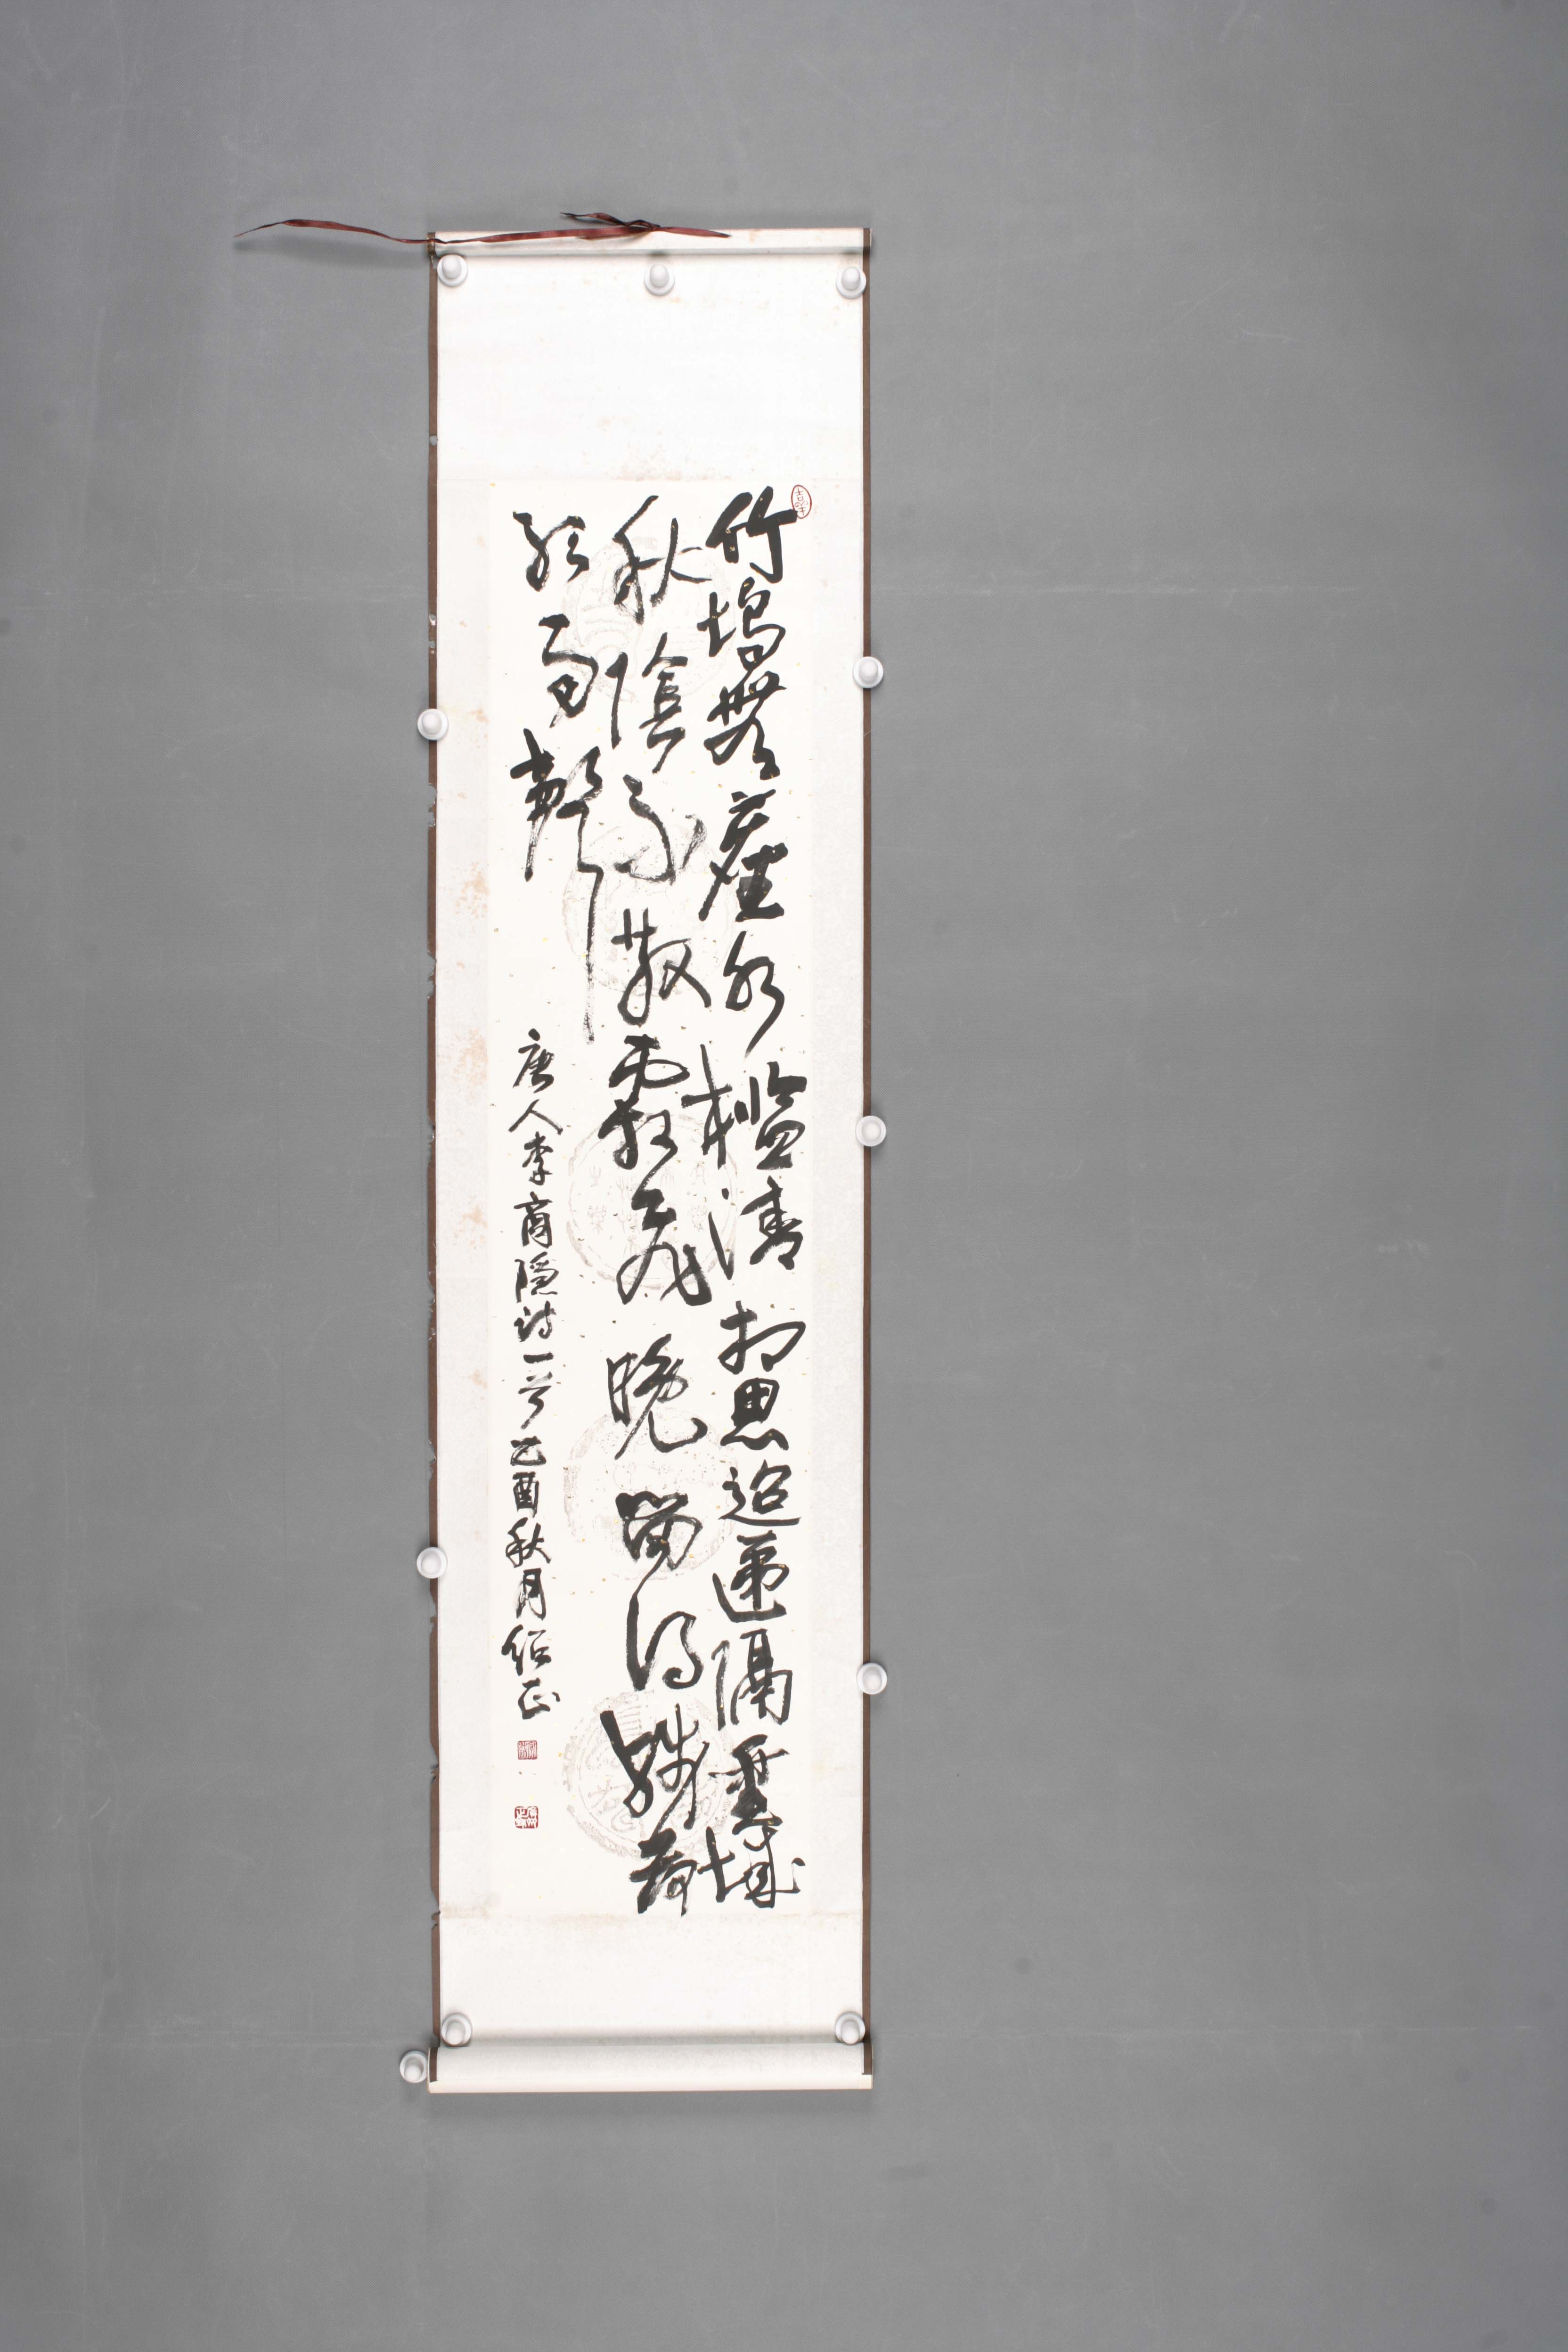 竹塢無塵水檻清相思迢遞隔重城
秋陰不散霜飛晚留得殘荷
聽雨聲
唐人李商隱詩一首乙酉秋月紹正